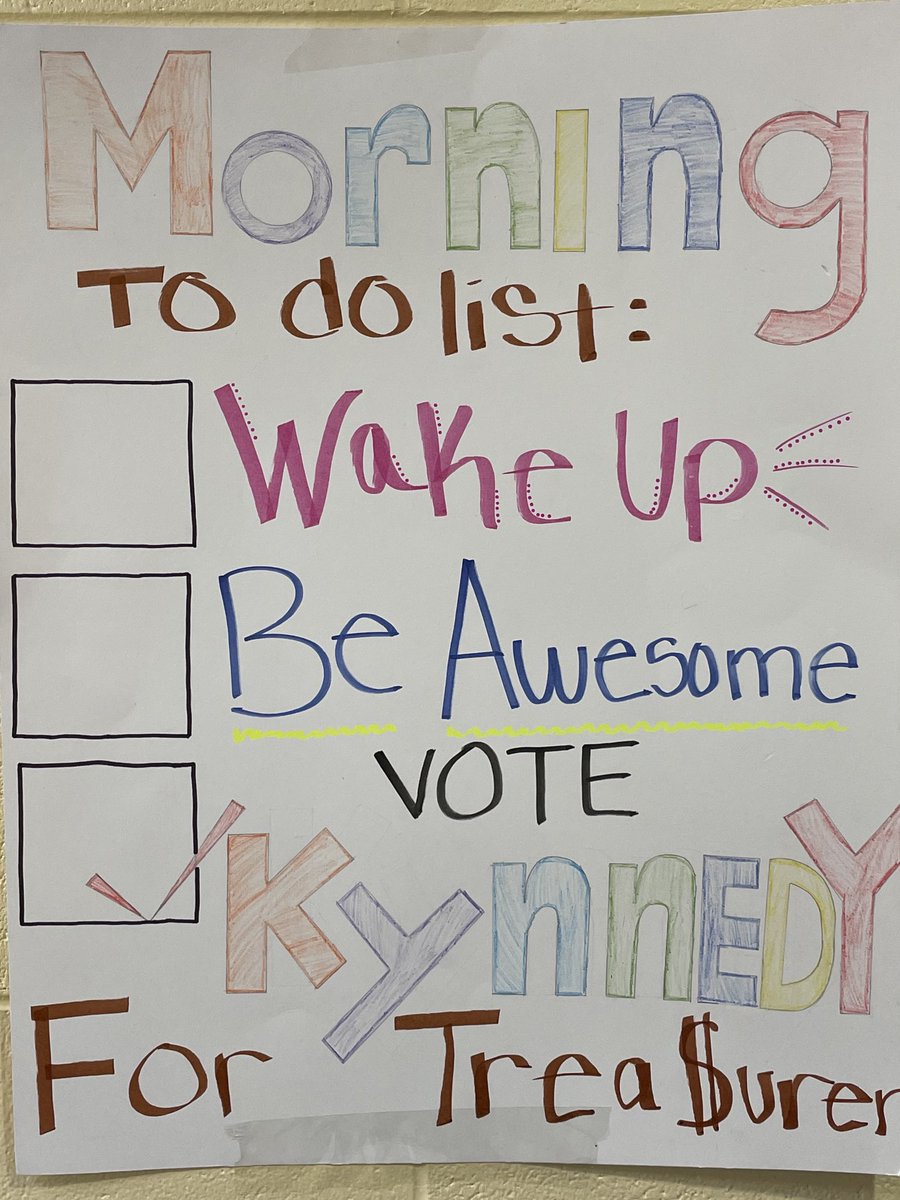 Morning
To do list:
Wake Up
Be Awesome
VOTE
KynnEDY
For Trea$urer